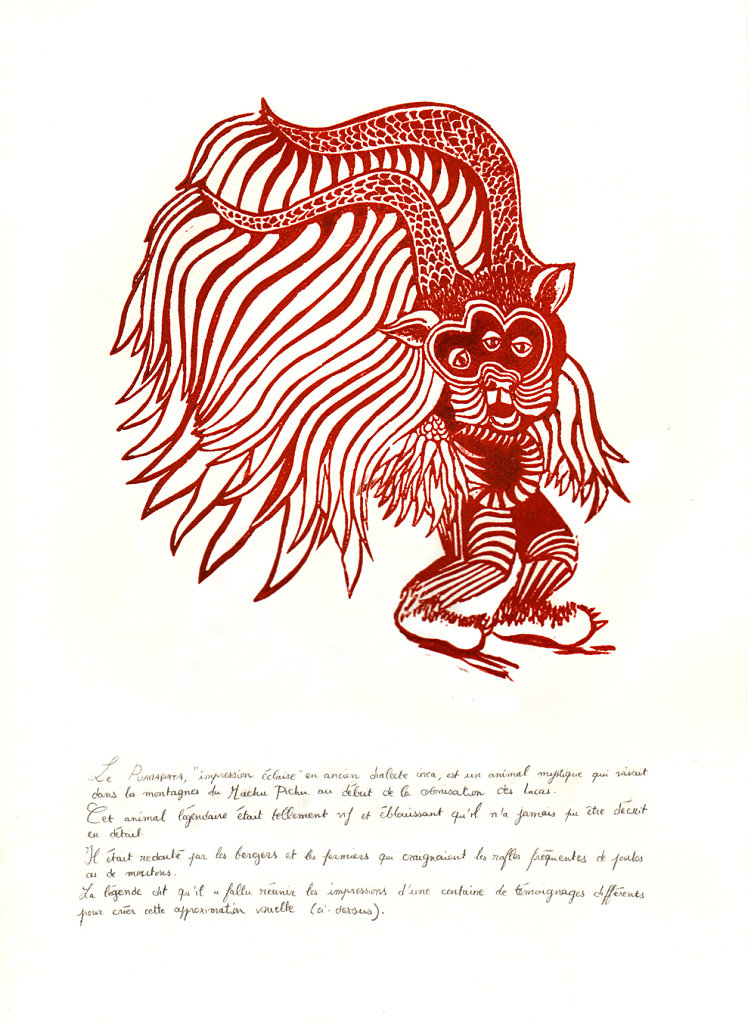 Le PUARAPATA, "impression éclaire" en ancien dialecte inca, est un animal mystique qui vivait
dans les montagnes du Machu Pichu au début de la colonisation des Incas.
Cet animal légendaire était tellement vif et éblouissant qu'il n'a jamais pu être décrit
en détail.
Il était redouté par les bergers et les fermiers qui craignaient les rafles fréquentes de poules
ou de moutons.
La légende dit qu'il a fallu réunir les impressions d'une centaine de témoignages différents
pour créer cette approximation visuelle (ci-dessus).